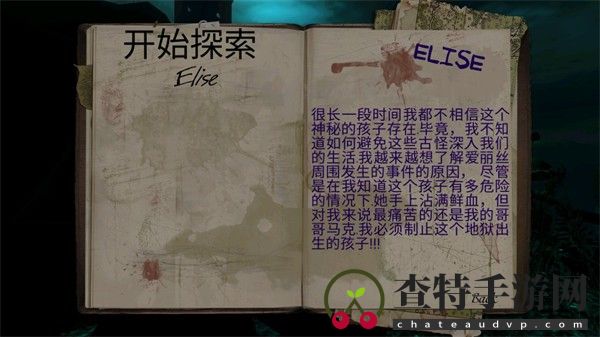 开始探索
Elise
ELISE
很长一段时间我都不相信这个
神秘的孩子存在.毕竟，我不知
道如何避免这些古怪深入我们
的生活.我越来越想了解爱丽丝
周围发生的事件的原因， 尽管
是在我知道这个孩子有多危险
的情况下.她手上沾满鲜血，但
对我来说最痛苦的还是我的哥
哥马克.我必须制止这个地狱出
生的孩子!!!
Back
查特手游网
chateaudvp.com